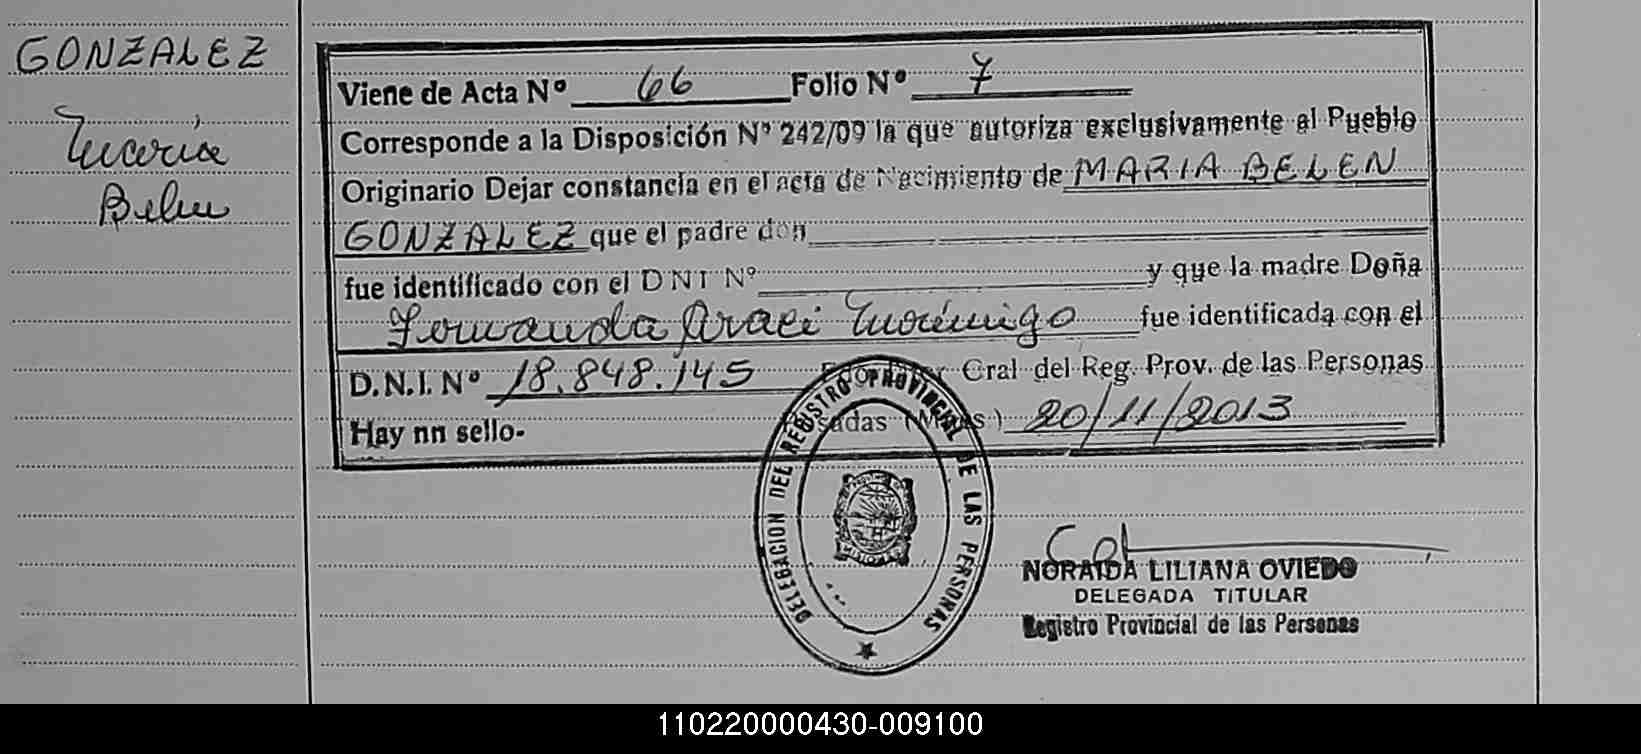 GONZALEZ
María
Belen
Viene de Acta Nº 66 Folio Nº 7
Corresponde a la Disposición Nº 242/09 la que autoriza exclusivamente al Pueblo
Originario Dejar constancia en el acta de Nacimiento de MARIA BELEN
GONZALEZ que el padre don
fue identificado con el DNI Nº y que la madre Doña
fue identificada con el
D.N.I. Nº 18.848.145 Gral del Reg. Prov. de las Personas
20/11/2013
Hay nn sello-
DELEGACION DEL REGISTRO PROVINCIAL DE LAS PERSONAS
NORAIDA LILIANA OVIEDO
DELEGADA TITULAR
Registro Provincial de las Personas
110220000430-009100